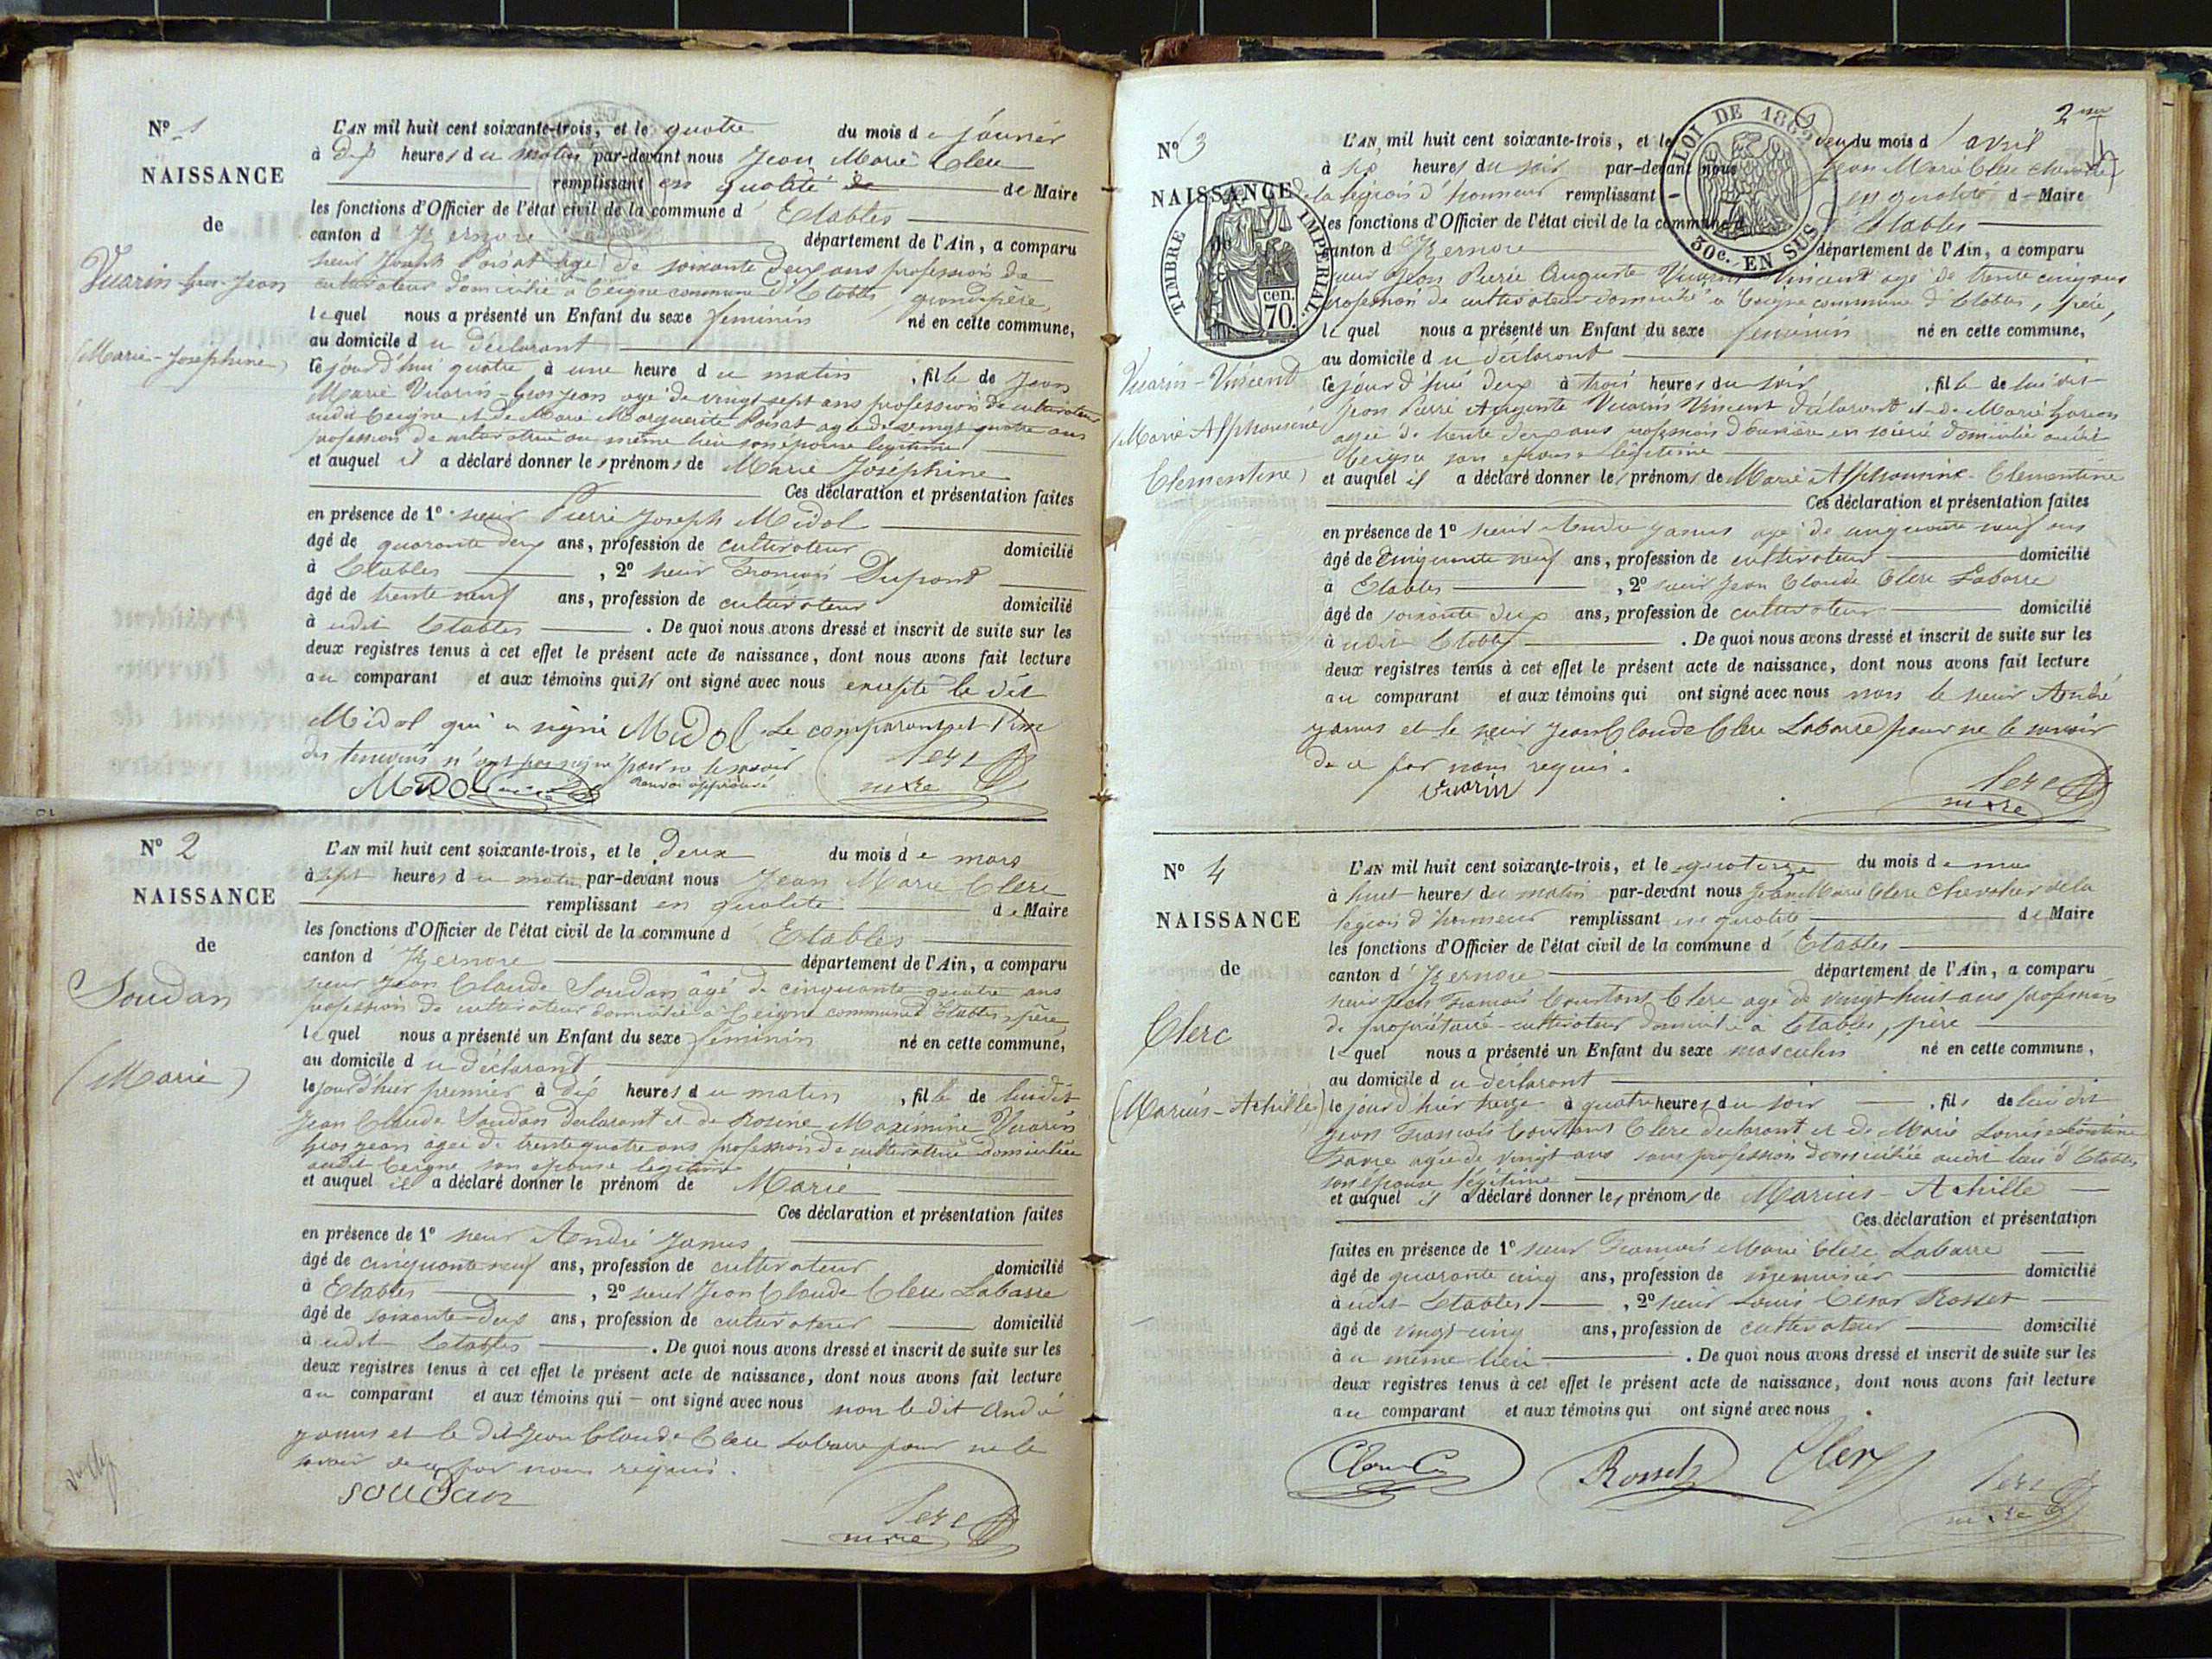 N° 1
NAISSANCE
de
Vuarin-Gros-Jean
(Marie-Josephine)
L'AN mil huit cent soixante-trois, et le quatre du mois de janvier
à dix heures du matin par-devant nous Jean Marie Clerc
remplissant en qualité de Maire
les fonctions d'Officier de l'état civil de la commune d'Etables
canton d'Izernore département de l'Ain, a comparu
sieur Joseph Poisat agé de soixante deux ans profession de
cultivateur domicilié à Ceigne commune d'Etables, grand-père,
lequel nous a présenté un Enfant du sexe féminin né en cette commune,
au domicile du déclarant
le jourd'hui quatre à une heure du matin, fille de Jean
Marie Vuarin-Gros Jean agé de vingt sept ans profession de cultivateur
audit Ceigne et de Marie Marguerite Poisat agée de vingt quatre ans
profession de cultivatrice au même lieu son épouse légitime
et auquel il a déclaré donner les prénoms de Marie Josephine
Ces déclaration et présentation faites
en présence de 1° sieur Pierre Joseph Midol
âgé de quarante deux ans, profession de cultivateur domicilié
à Etables, 2° sieur François Dupont
âgé de trente neuf ans, profession de cultivateur domicilié
à udit Etables. De quoi nous avons dressé et inscrit de suite sur les
deux registres tenus à cet effet le présent acte de naissance, dont nous avons fait lecture
au comparant et aux témoins qui ont signé avec nous excepté le dit
Midol qui a signé Midol. Le comparant et l'un
des temoins n'ont pas signé pour ne le savoir
Renvoi approuvé
MiDOL Clerc
maire
N° 2
NAISSANCE
de
Soudan
(Marie)
L'AN mil huit cent soixante-trois, et le deux du mois de mars
à sept heures du matin par-devant nous Jean Marie Clerc
remplissant en qualité de Maire
les fonctions d'Officier de l'état civil de la commune d'Etables
canton d'Izernore département de l'Ain, a comparu
sieur Jean Claude Soudan âgé de cinquante quatre ans
profession de cultivateur domicilié à Ceigne commune d'Etables, père
lequel nous a présenté un Enfant du sexe féminin né en cette commune,
au domicile du déclarant
le jourd'hier premier à dix heures du matin, fille de lui dit
Jean Claude Soudan déclarant et de Rosine Maximine Vuarin
Grosjean agée de trente quatre ans profession de cultivatrice domiciliée
audit Ceigne son épouse légitime
et auquel il a déclaré donner le prénom de Marie
Ces déclaration et présentation faites
en présence de 1° sieur André Janus
âgé de cinquante neuf ans, profession de cultivateur domicilié
à Etables, 2° sieur Jean Claude Clerc Labarre
âgé de soixante-deux ans, profession de cultivateur domicilié
à udit Etables. De quoi nous avons dressé et inscrit de suite sur les
deux registres tenus à cet effet le présent acte de naissance, dont nous avons fait lecture
au comparant et aux témoins qui – ont signé avec nous non le dit André
Janus et le dit Jean Claude Clerc Labarre pour ne le
savoir de ce par nous requis.
SOUDan
Clerc
maire
2me
N° 3
NAISSANCE
de
TIMBRE IMPERIAL
cen.
70.
LOI DE 1862
30c. EN SUS
Vuarin-Vincent
(Marie Alphonsine
Clementine)
L'AN, mil huit cent soixante-trois, et le deux du mois d'avril
à six heures du soir par-devant nous Jean Marie Clerc chevalier
de la legion d'honneur remplissant en qualité de Maire
les fonctions d'Officier de l'état civil de la commune d'Etables
canton d'Izernore département de l'Ain, a comparu
sieur Jean Pierre Auguste Vuarin Vincent agé de trente cinq ans
profession de cultivateur domicilié à Ceigne commune d'Etables, père,
lequel nous a présenté un Enfant du sexe féminin né en cette commune,
au domicile du déclarant
le jourd'hui deux à trois heures du soir, fille de lui dit
Jean Pierre Auguste Vuarin Vincent déclarant et de Marie
agée de trente deux ans profession d'ouvrière en soierie domiciliée audit
Ceigne son épouse légitime
et auquel il a déclaré donner les prénoms de Marie Alphonsine-Clementine
Ces déclaration et présentation faites
en présence de 1° sieur André Janus agé de cinquante neuf ans
âgé de cinquante neuf ans, profession de cultivateur domicilié
à Etables, 2° sieur Jean Claude Clerc Labarre
âgé de soixante deux ans, profession de cultivateur domicilié
à udit Etables. De quoi nous avons dressé et inscrit de suite sur les
deux registres tenus à cet effet le présent acte de naissance, dont nous avons fait lecture
au comparant et aux témoins qui ont signé avec nous non le sieur André
Janus et le sieur Jean Claude Clerc Labarre pour ne le savoir
de ce par nous requis.
Vuarin
Clerc
maire
N° 4
NAISSANCE
de
Clerc
(Marius-Achille)
L'AN mil huit cent soixante-trois, et le quatorze du mois de mai
à huit heures du matin par-devant nous Jean Marie Clerc chevalier de la
legion d'honneur remplissant en qualité de Maire
les fonctions d'Officier de l'état civil de la commune d'Etables
canton d'Izernore département de l'Ain, a comparu
sieur Jean François Constant Clerc agé de vingt huit ans profession
de propriétaire-cultivateur domicilié à Etables, père
lequel nous a présenté un Enfant du sexe masculin né en cette commune,
au domicile du déclarant
le jourd'hier treize à quatre heures du soir, fils de lui dit
Jean François Constant Clerc déclarant et de Marie Louise Léontine
agée de vingt ans sans profession domiciliée audit lieu d'Etables
son épouse légitime
et auquel il a déclaré donner les prénoms de Marius-Achille
Ces déclaration et présentation
faites en présence de 1° sieur François Marie Clerc Labarre
âgé de quarante cinq ans, profession de menuisier domicilié
à udit Etables, 2° sieur Louis Cesar Rosset
âgé de vingt-cinq ans, profession de cultivateur domicilié
à u même lieu. De quoi nous avons dressé et inscrit de suite sur les
deux registres tenus à cet effet le présent acte de naissance, dont nous avons fait lecture
au comparant et aux témoins qui ont signé avec nous.
Rosset Clerc Clerc
maire